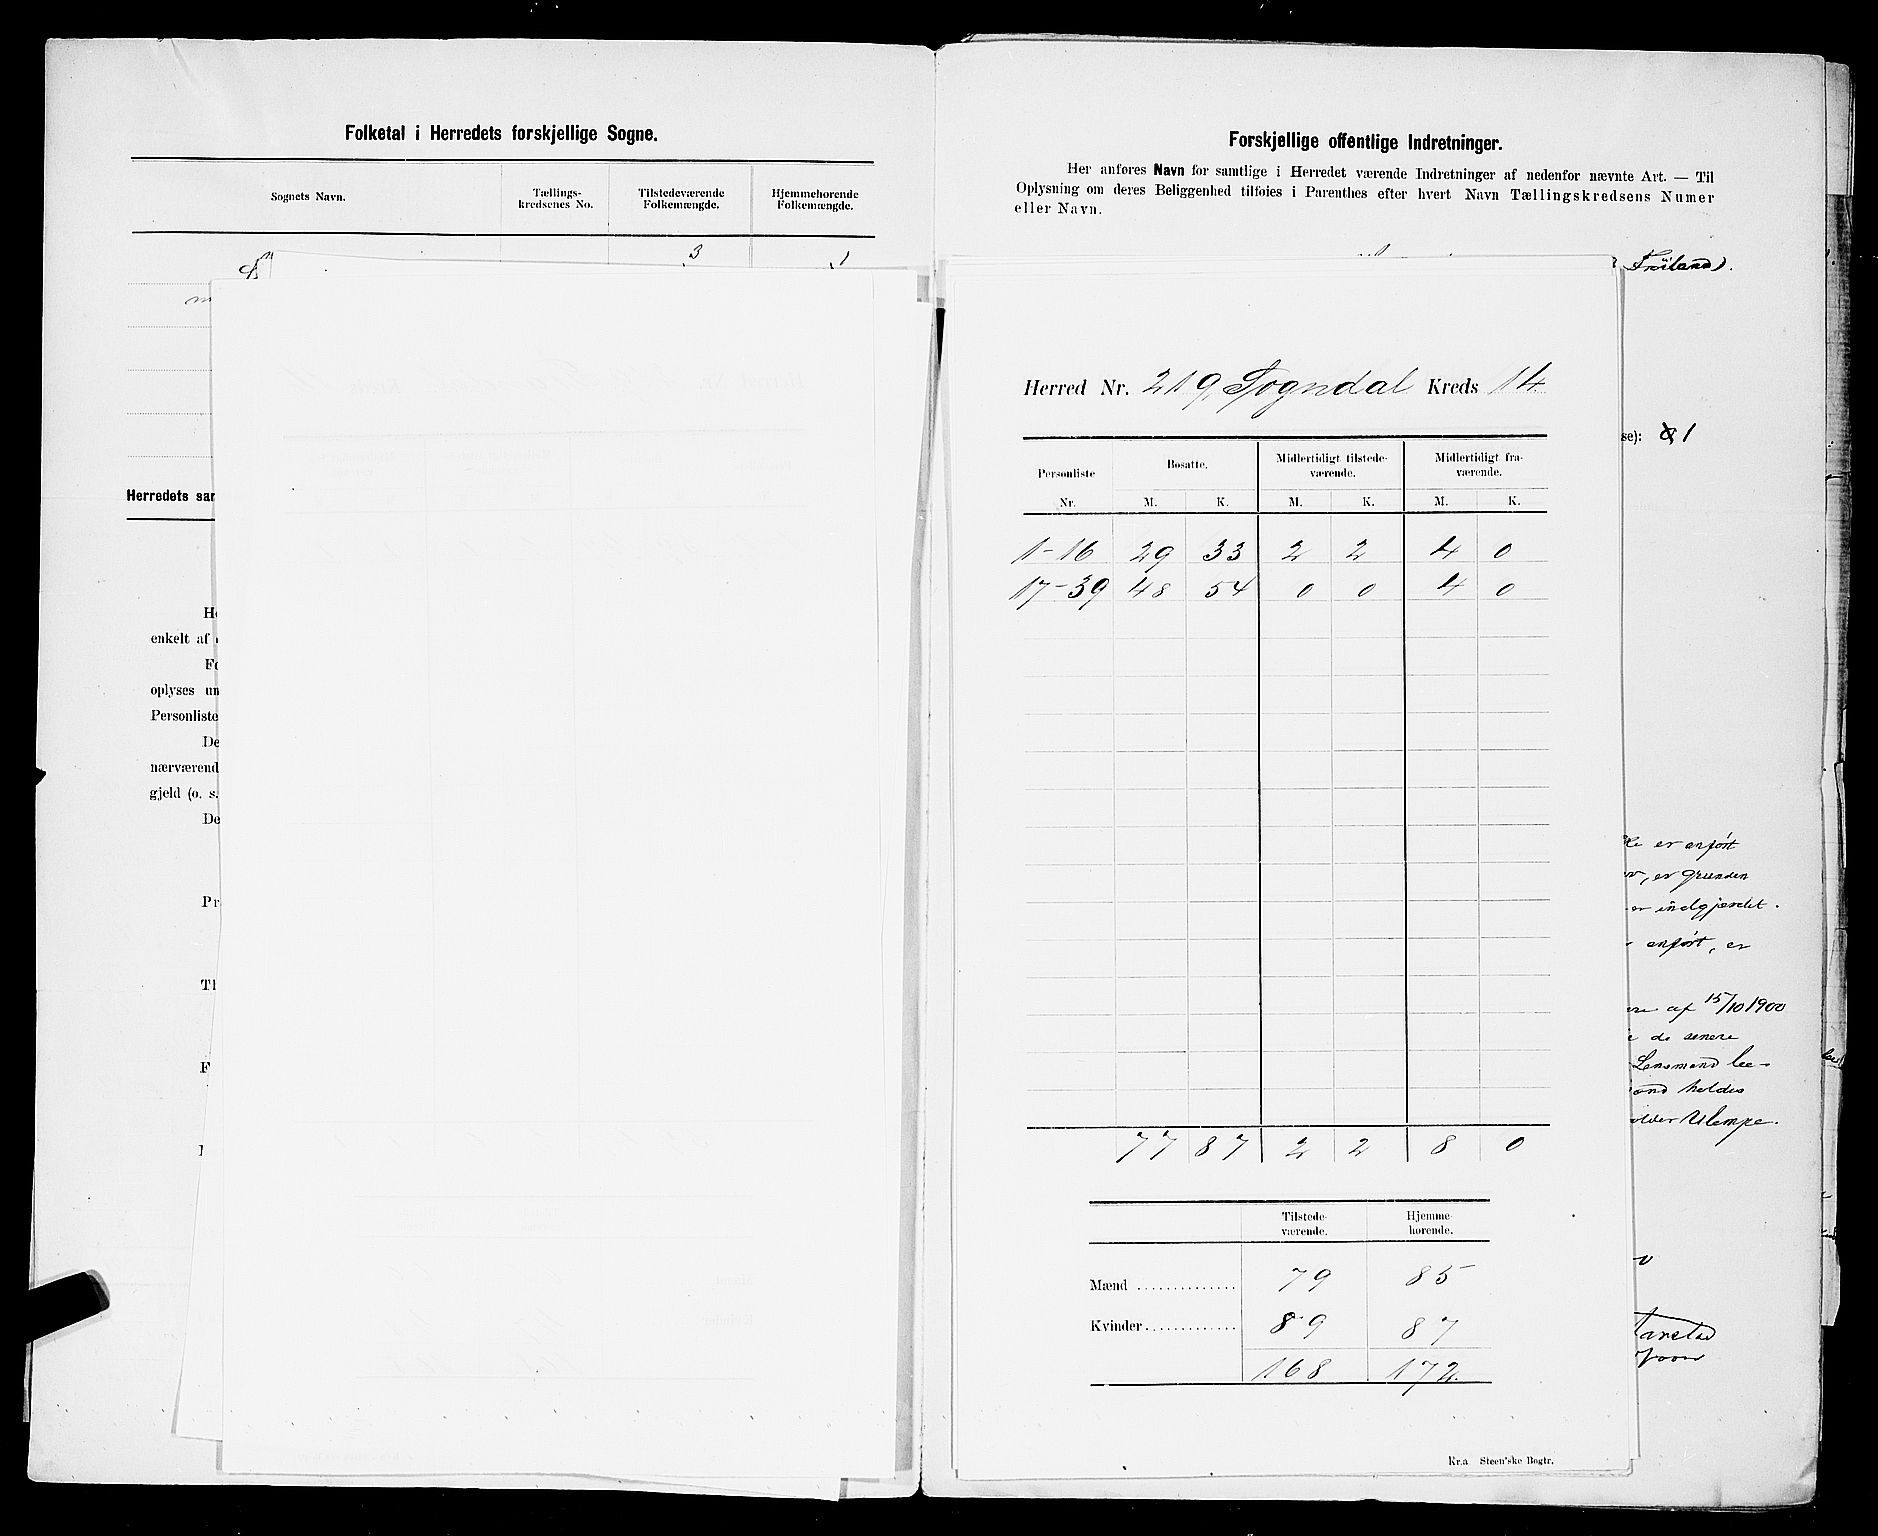 Folketal i Herredets forskjellige Sogne.
Sognets Navn. Tællings-kredsenes No. Tilstedeværende Folkemængde. Hjemmehørende Folkemængde.
3
Herredets sam
He
enkelt af
Fo
oplyses un
Personliste
De
nærværend
gjeld (o. s.
De
Pr
Tl
F
Forskjellige offentlige Indretninger.
Her anføres Navn for samtlige i Herredet værende Indretninger af nedenfor nævnte Art. — Til
Oplysning om deres Beliggenhed tilføies i Parenthes efter hvert Navn Tællingskredsens Numer
eller Navn.
Frøiland).
se): 1
Herred Nr. 219, Sogndal Kreds 14.
Personliste Nr. Bosatte. Midlertidigt tilstede-værende. Midlertidigt fra-værende.
M. K. M. K. M. K.
1-16 29 33 2 2 4 0
17-39 48 54 0 0 4 0
77 87 2 2 8 0
Tilstede-værende. Hjemme-hørende.
Mænd .............. 79 85
Kvinder ............. 89 87
168 172
Kr.a Steen'ske Bogtr.
er anført
, er grunden
er indgjærdet.
anført, er
af 15/10 1900
de senere
Lensmand
holdes
Ulempe.